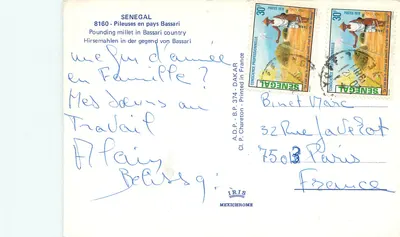 SENEGAL
8160 - Pileuses en pays Bassari
Pounding millet in Bassari country
Hirsemahlen in der gegend von Bassari
une fin d'année
en Famille ?
Mes sœurs au
Travail
Alain
A.D.P. - B.P. 374 - DAKAR
Cl. P. Chareton - Printed in France
IRIS
MEXICHROME
30F
SENEGAL
30F
SENEGAL
Binet Marc
32 Rue
75013 Paris
France